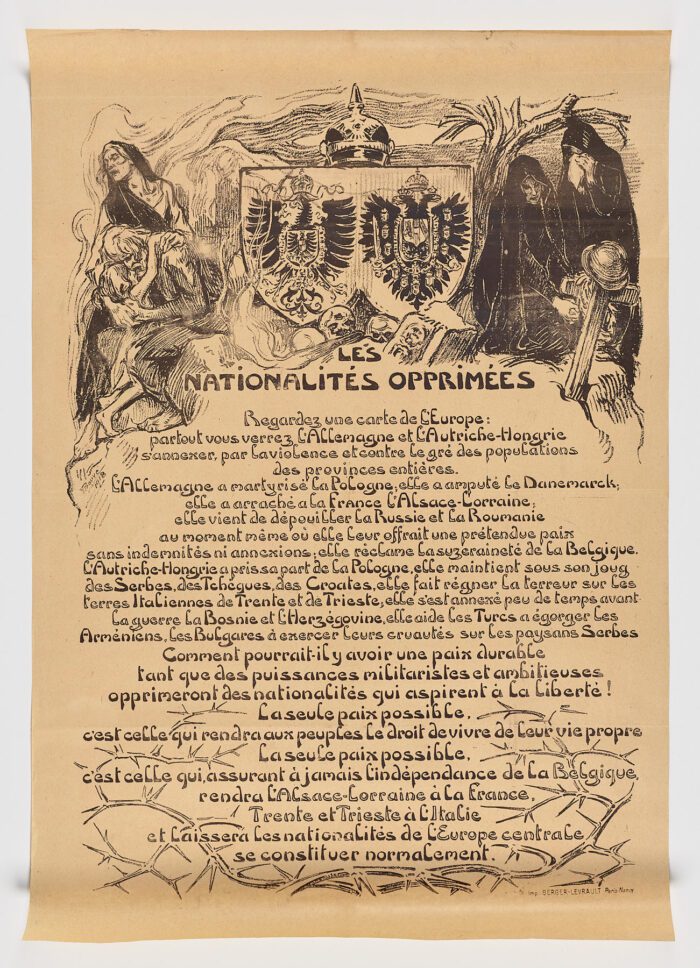 LES
NATIONALITÉS OPPRIMÉES
Regardez une carte de l'Europe:
partout vous verrez l'Allemagne et l'Autriche-Hongrie
s'annexer, par la violence et contre le gré des populations
des provinces entières.
L'Allemagne a martyrisé la Pologne; elle a amputé le Danemarck;
elle a arraché a la France l'Alsace-Lorraine;
elle vient de dépouiller la Russie et la Roumanie
au moment même où elle leur offrait une prétendue paix
sans indemnités ni annexions; elle réclame la suzeraineté de la Belgique.
L'Autriche-Hongrie a pris sa part de la Pologne, elle maintient sous son joug
des Serbes, des Tchèques, des Croates, elle fait régner la terreur sur les
terres Italiennes de Trente et de Trieste, elle s'est annexé peu de temps avant
la guerre la Bosnie et l'Herzégovine, elle aide les Turcs a égorger les
Arméniens, les Bulgares à exercer leurs cruautés sur les paysans Serbes
Comment pourrait-il y avoir une paix durable
tant que des puissances militaristes et ambitieuses
opprimeront des nationalités qui aspirent à la liberté!
La seule paix possible,
c'est celle qui rendra aux peuples le droit de vivre de leur vie propre
La seule paix possible,
c'est celle qui, assurant à jamais l'indépendance de la Belgique,
rendra l'Alsace-Lorraine à la France,
Trente et Trieste à l'Italie
et laissera les nationalités de l'Europe centrale
se constituer normalement.
Imp. BERGER-LEVRAULT Paris-Nancy